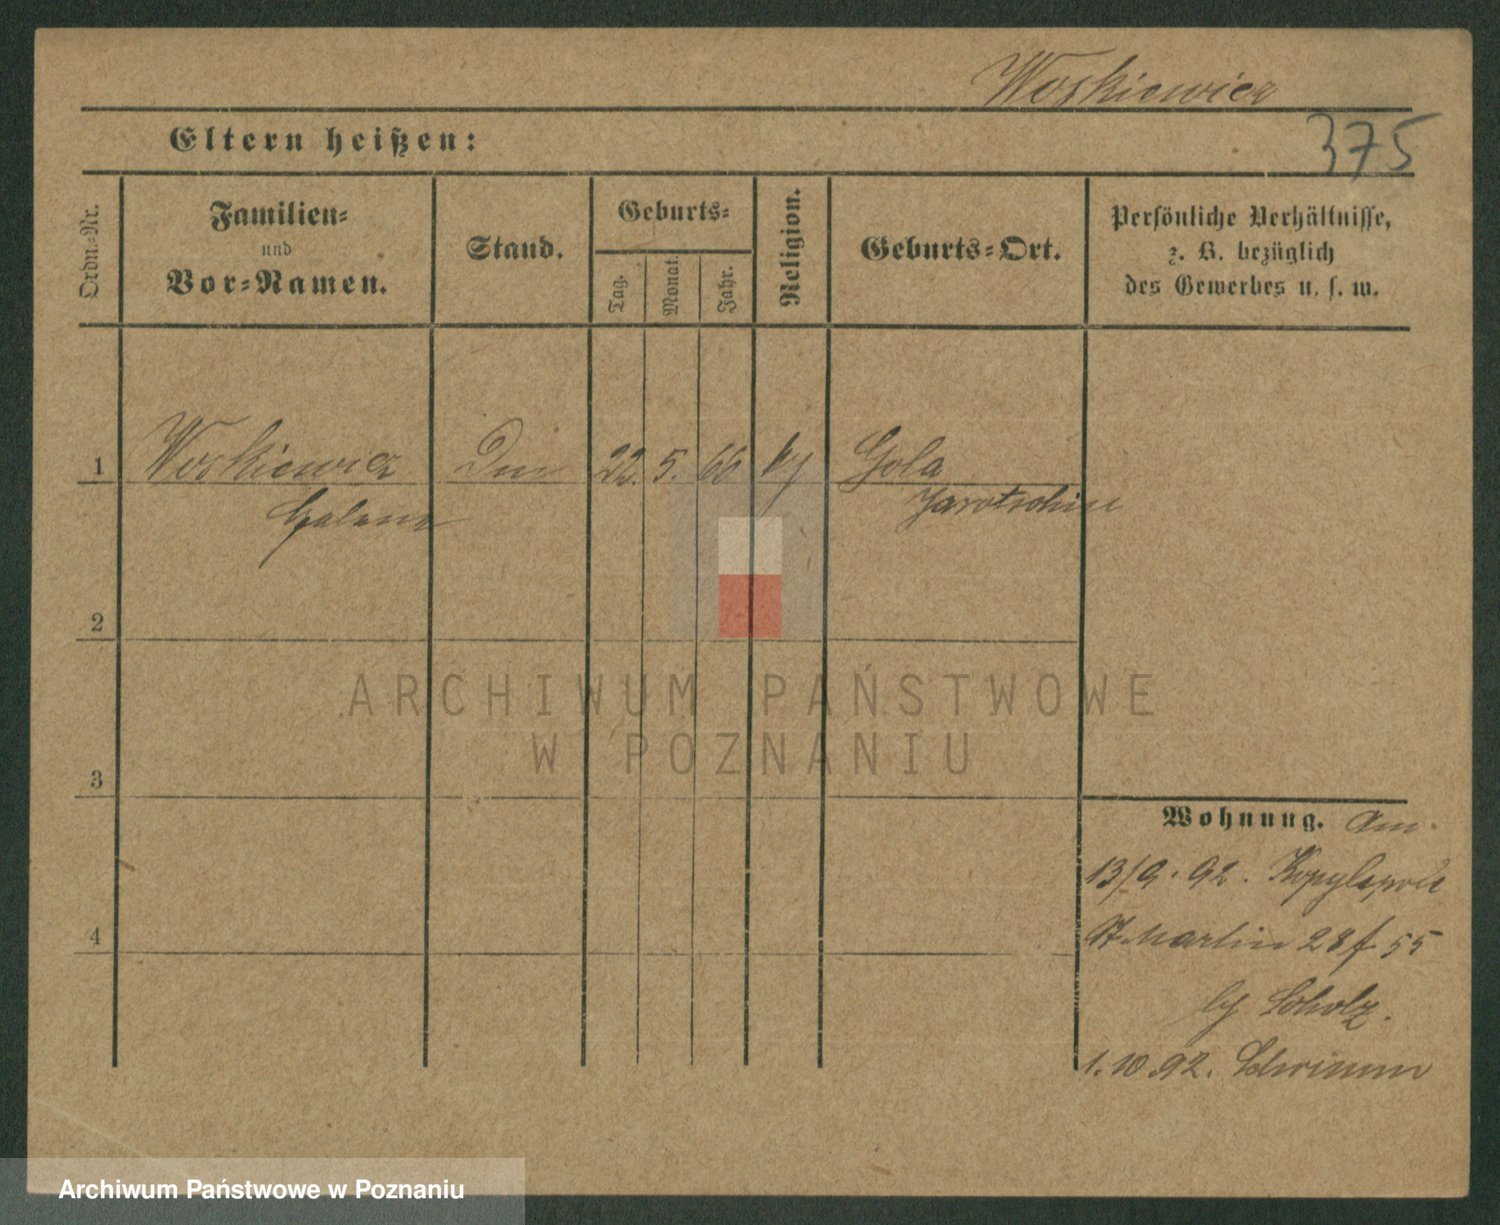 Woskiewicz
375
Eltern heißen:
Ordn.-Nr.
Familien-
und
Vor-Namen.
Stand.
Geburts-
Tag.
Monat.
Jahr.
Religion.
Geburts-Ort.
Persönliche Verhältnisse,
z. B. bezüglich
des Gewerbes u. s. w.
1
Woskiewicz
22. 5. 66
Gola
Jarotschin
2
3
4
Wohnung.
13/9. 92.
St Martin 28 55
Scholz.
1. 10 92. Schrimm
ARCHIWUM PAŃSTWOWE
W POZNANIU
Archiwum Państwowe w Poznaniu